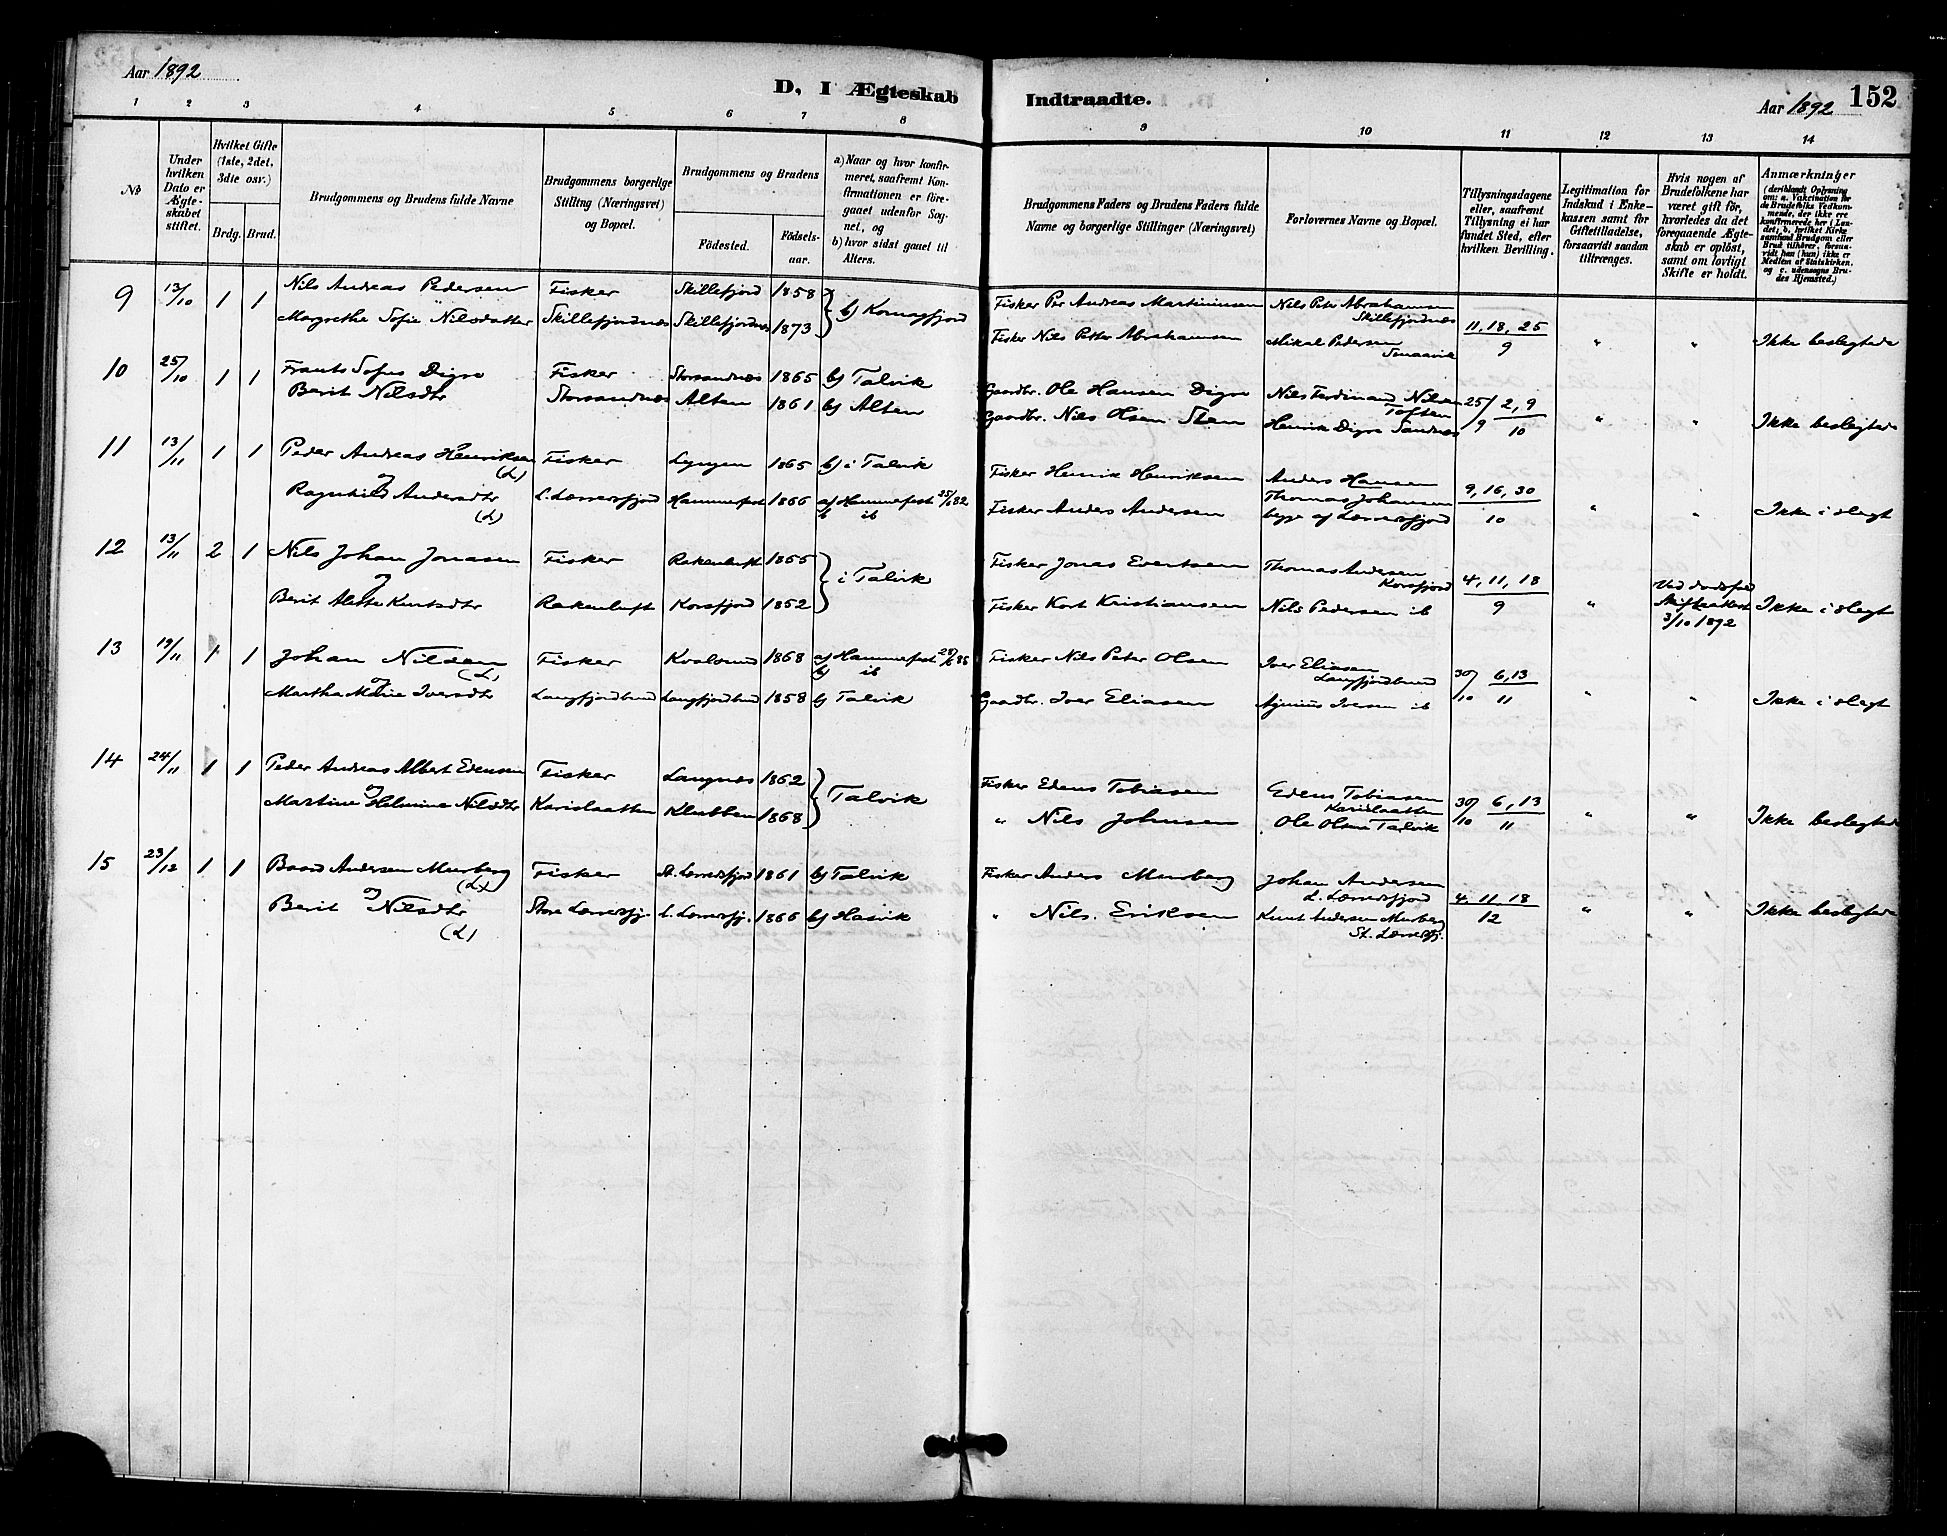 Aar 1892
D. I Ægteskab Indtraadte.
Aar 1892 152
1 2 3 4 5 6 7 8 9 10 11 12 13 14
No
Under hvilken Dato er Ægteskabet stiftet.
Hvilket Gifte (1ste, 2det, 3die osv.)
Brdg. Brud.
Brudgommens og Brudens fulde Navne
Brudgommens borgerlige Stilling (Næringsvei) og Bopæl.
Brudgommens og Brudens
Födested.
Födselsaar.
a) Naar og hvor konfirmeret, saafremt Konfirmationen er foregaaet udenfor Sognet, og
b) hvor sidst gaaet til Alters.
Brudgommens Faders og Brudens Faders fulde Navne og borgerlige Stillinger (Næringsvei)
Forlovernes Navne og Bopæl.
Tillysningsdagene eller, saafremt Tillysning ei har fundet Sted, efter hvilken Bevilling.
Legitimation for Indskud i Enkekassen samt for Giftetilladelse, forsaavidt saadan tiltrænges.
Hvis nogen af Brudefolkene har været gift för, hvorledes da det foregaaende Ægteskab er oplöst, samt om lovligt Skifte er holdt.
Anmærkninger (deriblandt Oplysning om: a. Vaccination for de Brudefolks Vedkommende, der ikke ere konfirmerede her i Landet; b. hvilket Kirkesamfund Brudgom eller Brud tilhörer, forsaavidt han (hun) ikke er Medlem af Statskirken, og c. udensogns Brudes Hjemsted.)
9 13/10 1 1 Nils Andreas Pedersen Fisker Skillefjord 1858 b) Komagfjord Fisker Per Andreas Martinusen Nils Peter Abrahamsen Skillefjordnæs 11, 18, 25
Margrethe Sofie Nilsdatter Skillefjordnæs Skillefjordnæs 1873 Fisker Nils Petter Abrahamsen Mikal Pedersen 9 " " Ikke beslegtede
10 25/10 1 1 Frants Sofus Digre Fisker Storsandnæs 1865 b) Talvik Gaardbr. Ole Hansen Digre Nils Ferdinand Nilsen Toften 25/9 2, 9
Berit Nilsdtr Storsandnæs Alten 1861 b) Alten Gaardbr. Nils Olsen Henrik Digre Sandnæs 10 " " Ikke beslegtede
11 13/11 1 1 Peder Andreas Henriksen (L) Fisker Lyngen 1865 b) i Talvik Fisker Henrik Henriksen Anders Hansen 9, 16, 30
og Ragnhild Andersdtr (L) L. Lerresfjord Hammerfest 1866 a) Hammerfest 25/6 82 b ib Fisker Anders Andersen Thomas Johansen begge af Lerresfjord 10 " " Ikke i slegt
12 13/11 2 1 Nils Johan Jonasen Fisker Rakenluft 1855 i Talvik Fisker Jonas Evertsen Thomas Andersen Korsfjord 4, 11, 18 Ved dødsfald
og Berit Alette Kortsdtr Rakenluft Korsfjord 1852 Fisker Kort Kristiansen Nils Pedersen ib 9 " Skifteattest 3/10 1892 Ikke i slegt
13 19/11 1 1 Johan Nilsen (L) Fisker Kvalsund 1868 a) Hammerfest b) ib Fisker Nils Peter Olsen Iver Eliasen Langfjordbund 30/10 6, 13
og Martha Marie Iversdtr Langfjordbund Langfjordbund 1858 b) Talvik Gaardbr. Iver Eliasen Iversen ib 11 " " Ikke i slegt
14 24/11 1 1 Peder Andreas Albert Edensen Fisker Langnæs 1862 Talvik Fisker Edens Tobiasen Edens Tobiasen 30/10 6, 13
og Martine Helmine Nilsdtr Karislaatten Klubben 1868 " Nils Johnsen Karislaatten Ole Olsen Talvik 11 " " Ikke beslegtede
15 23/12 1 1 Baard Andersen Murberg (L) Fisker St. Lerresfjord 1861 b) Talvik Fisker Anders Murberg Johan Andersen L. Lerresfjord 4, 11, 18
og Berit Nilsdtr (L) Store Lerresfj. L. Lerresfj. 1866 b) Hasvik " Nils Eriksen Knut Andersen Murberg St. Lerresfj. 12 " " Ikke beslegtede